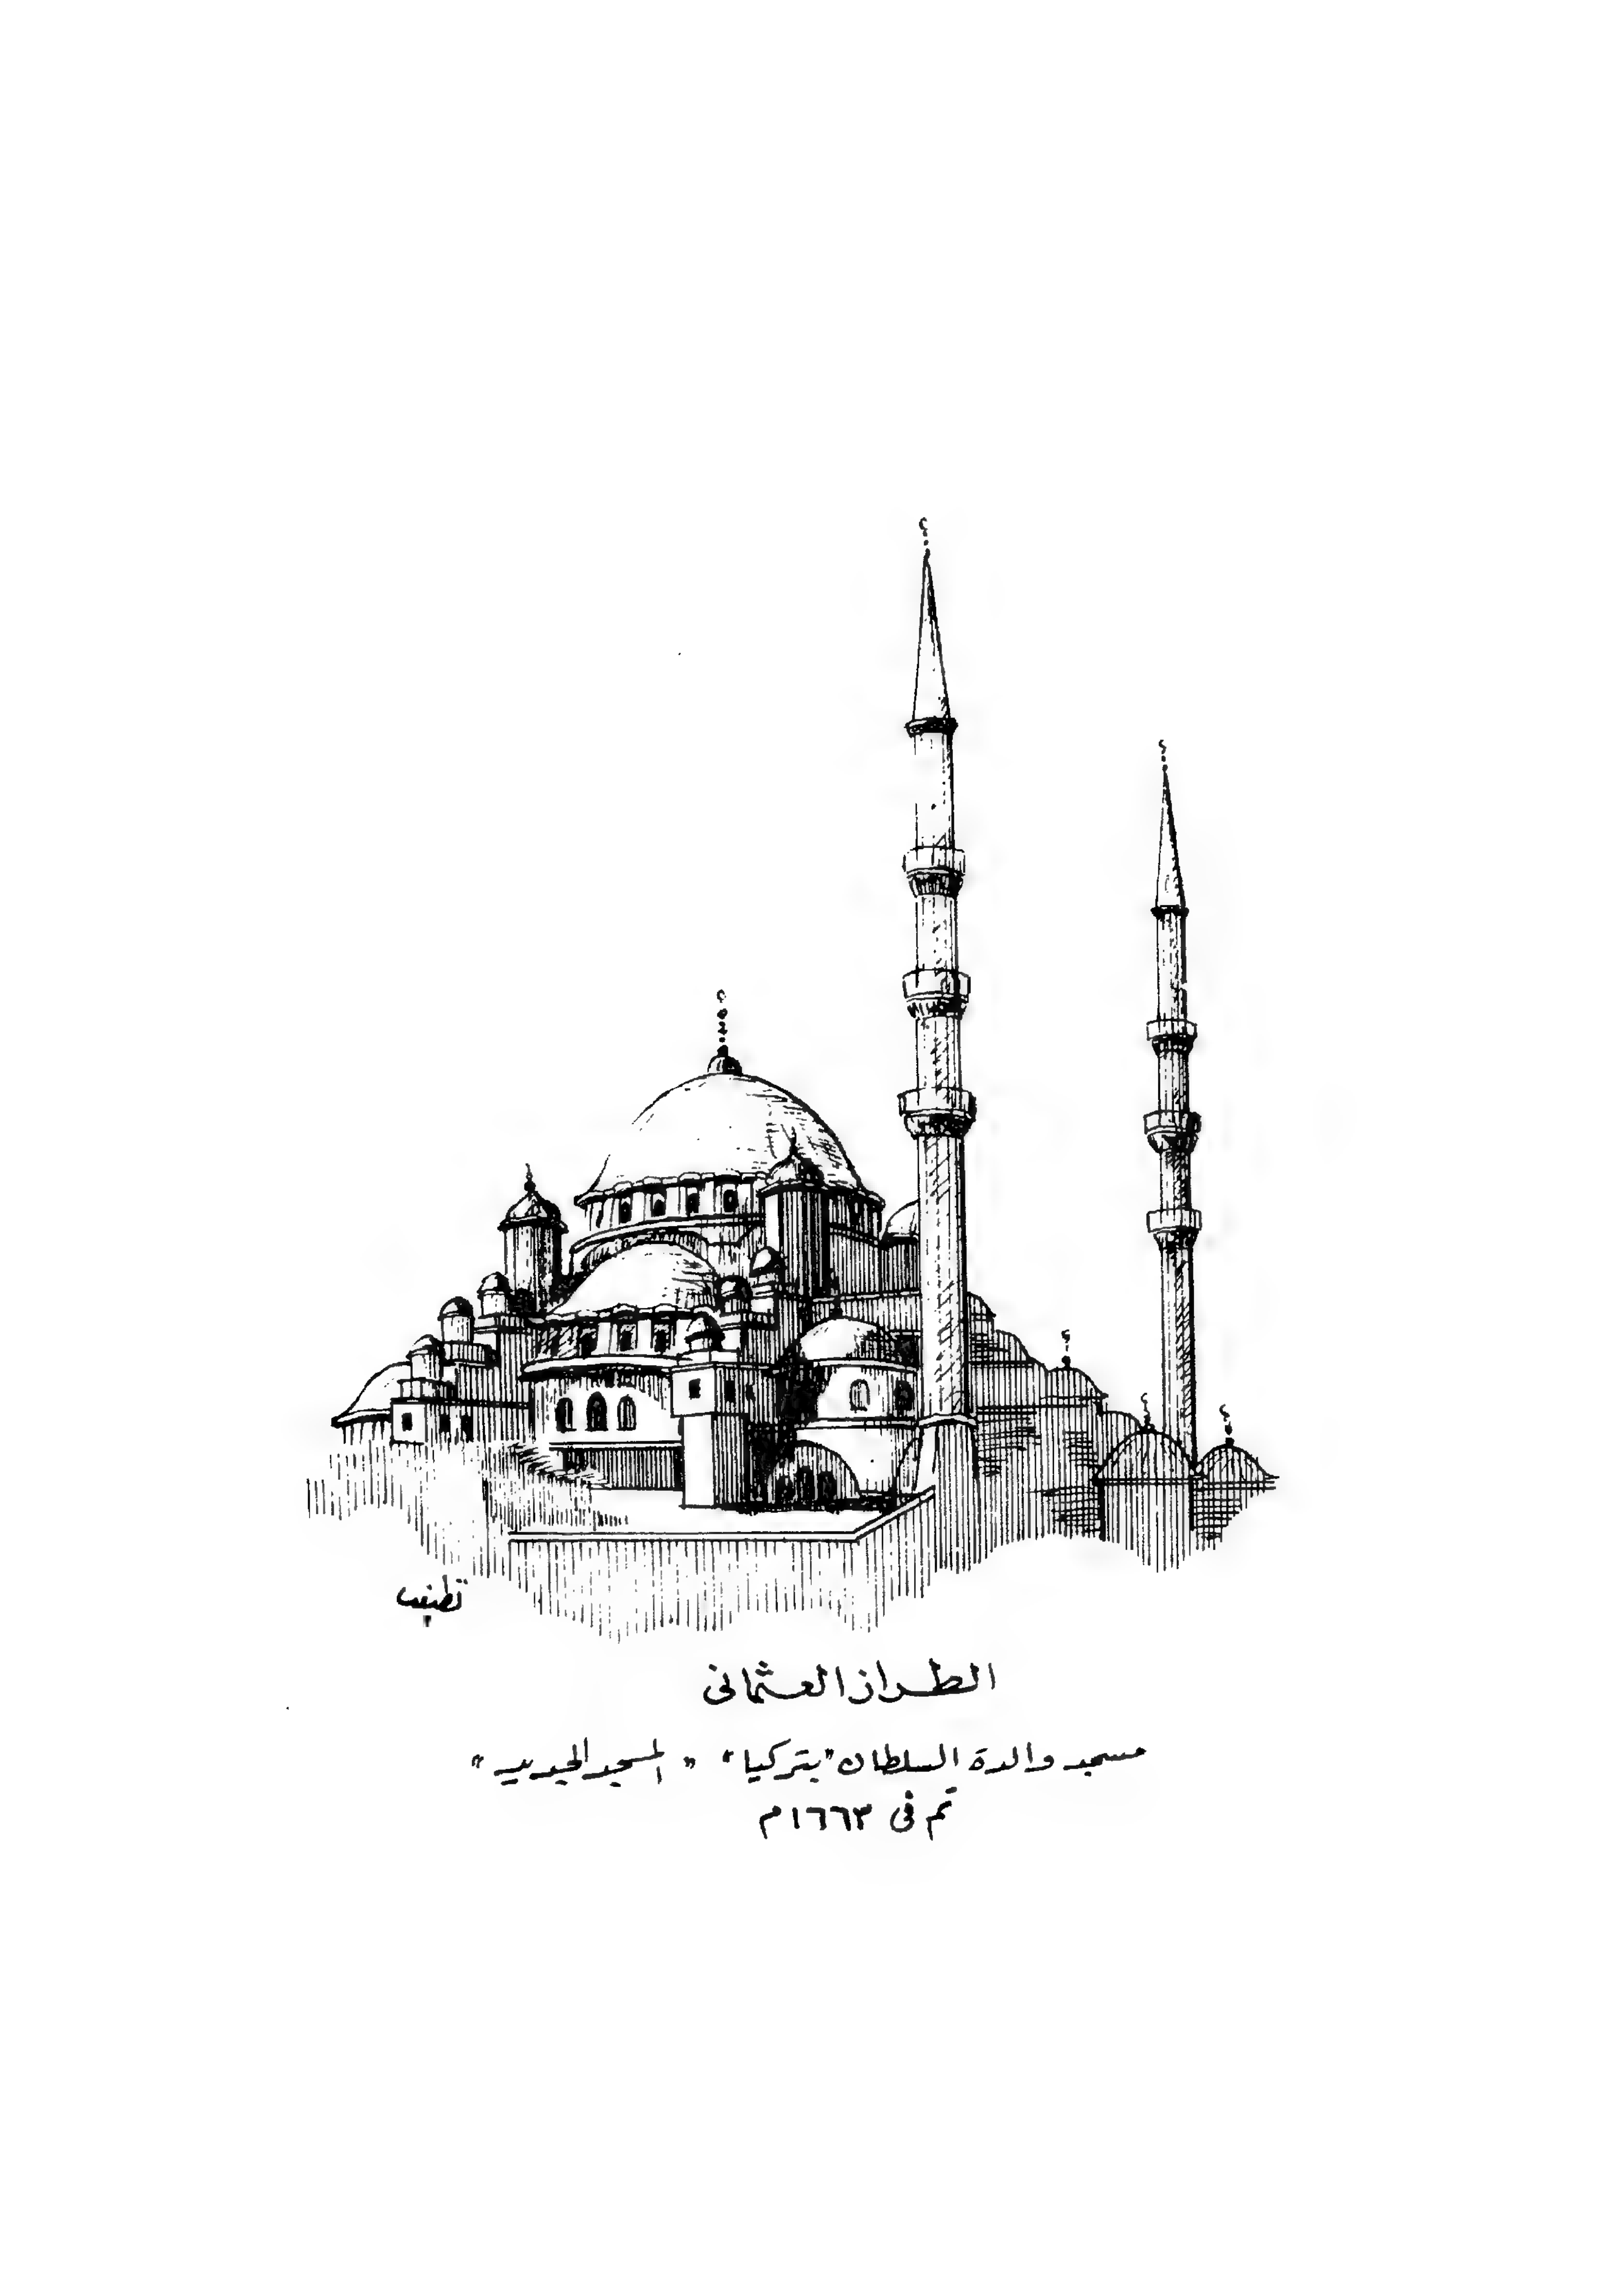 الطراز العثمانى
مسجد والدة السلطان "بتركيا" "المسجد الجديد"
تم فى ١٦٦٣م